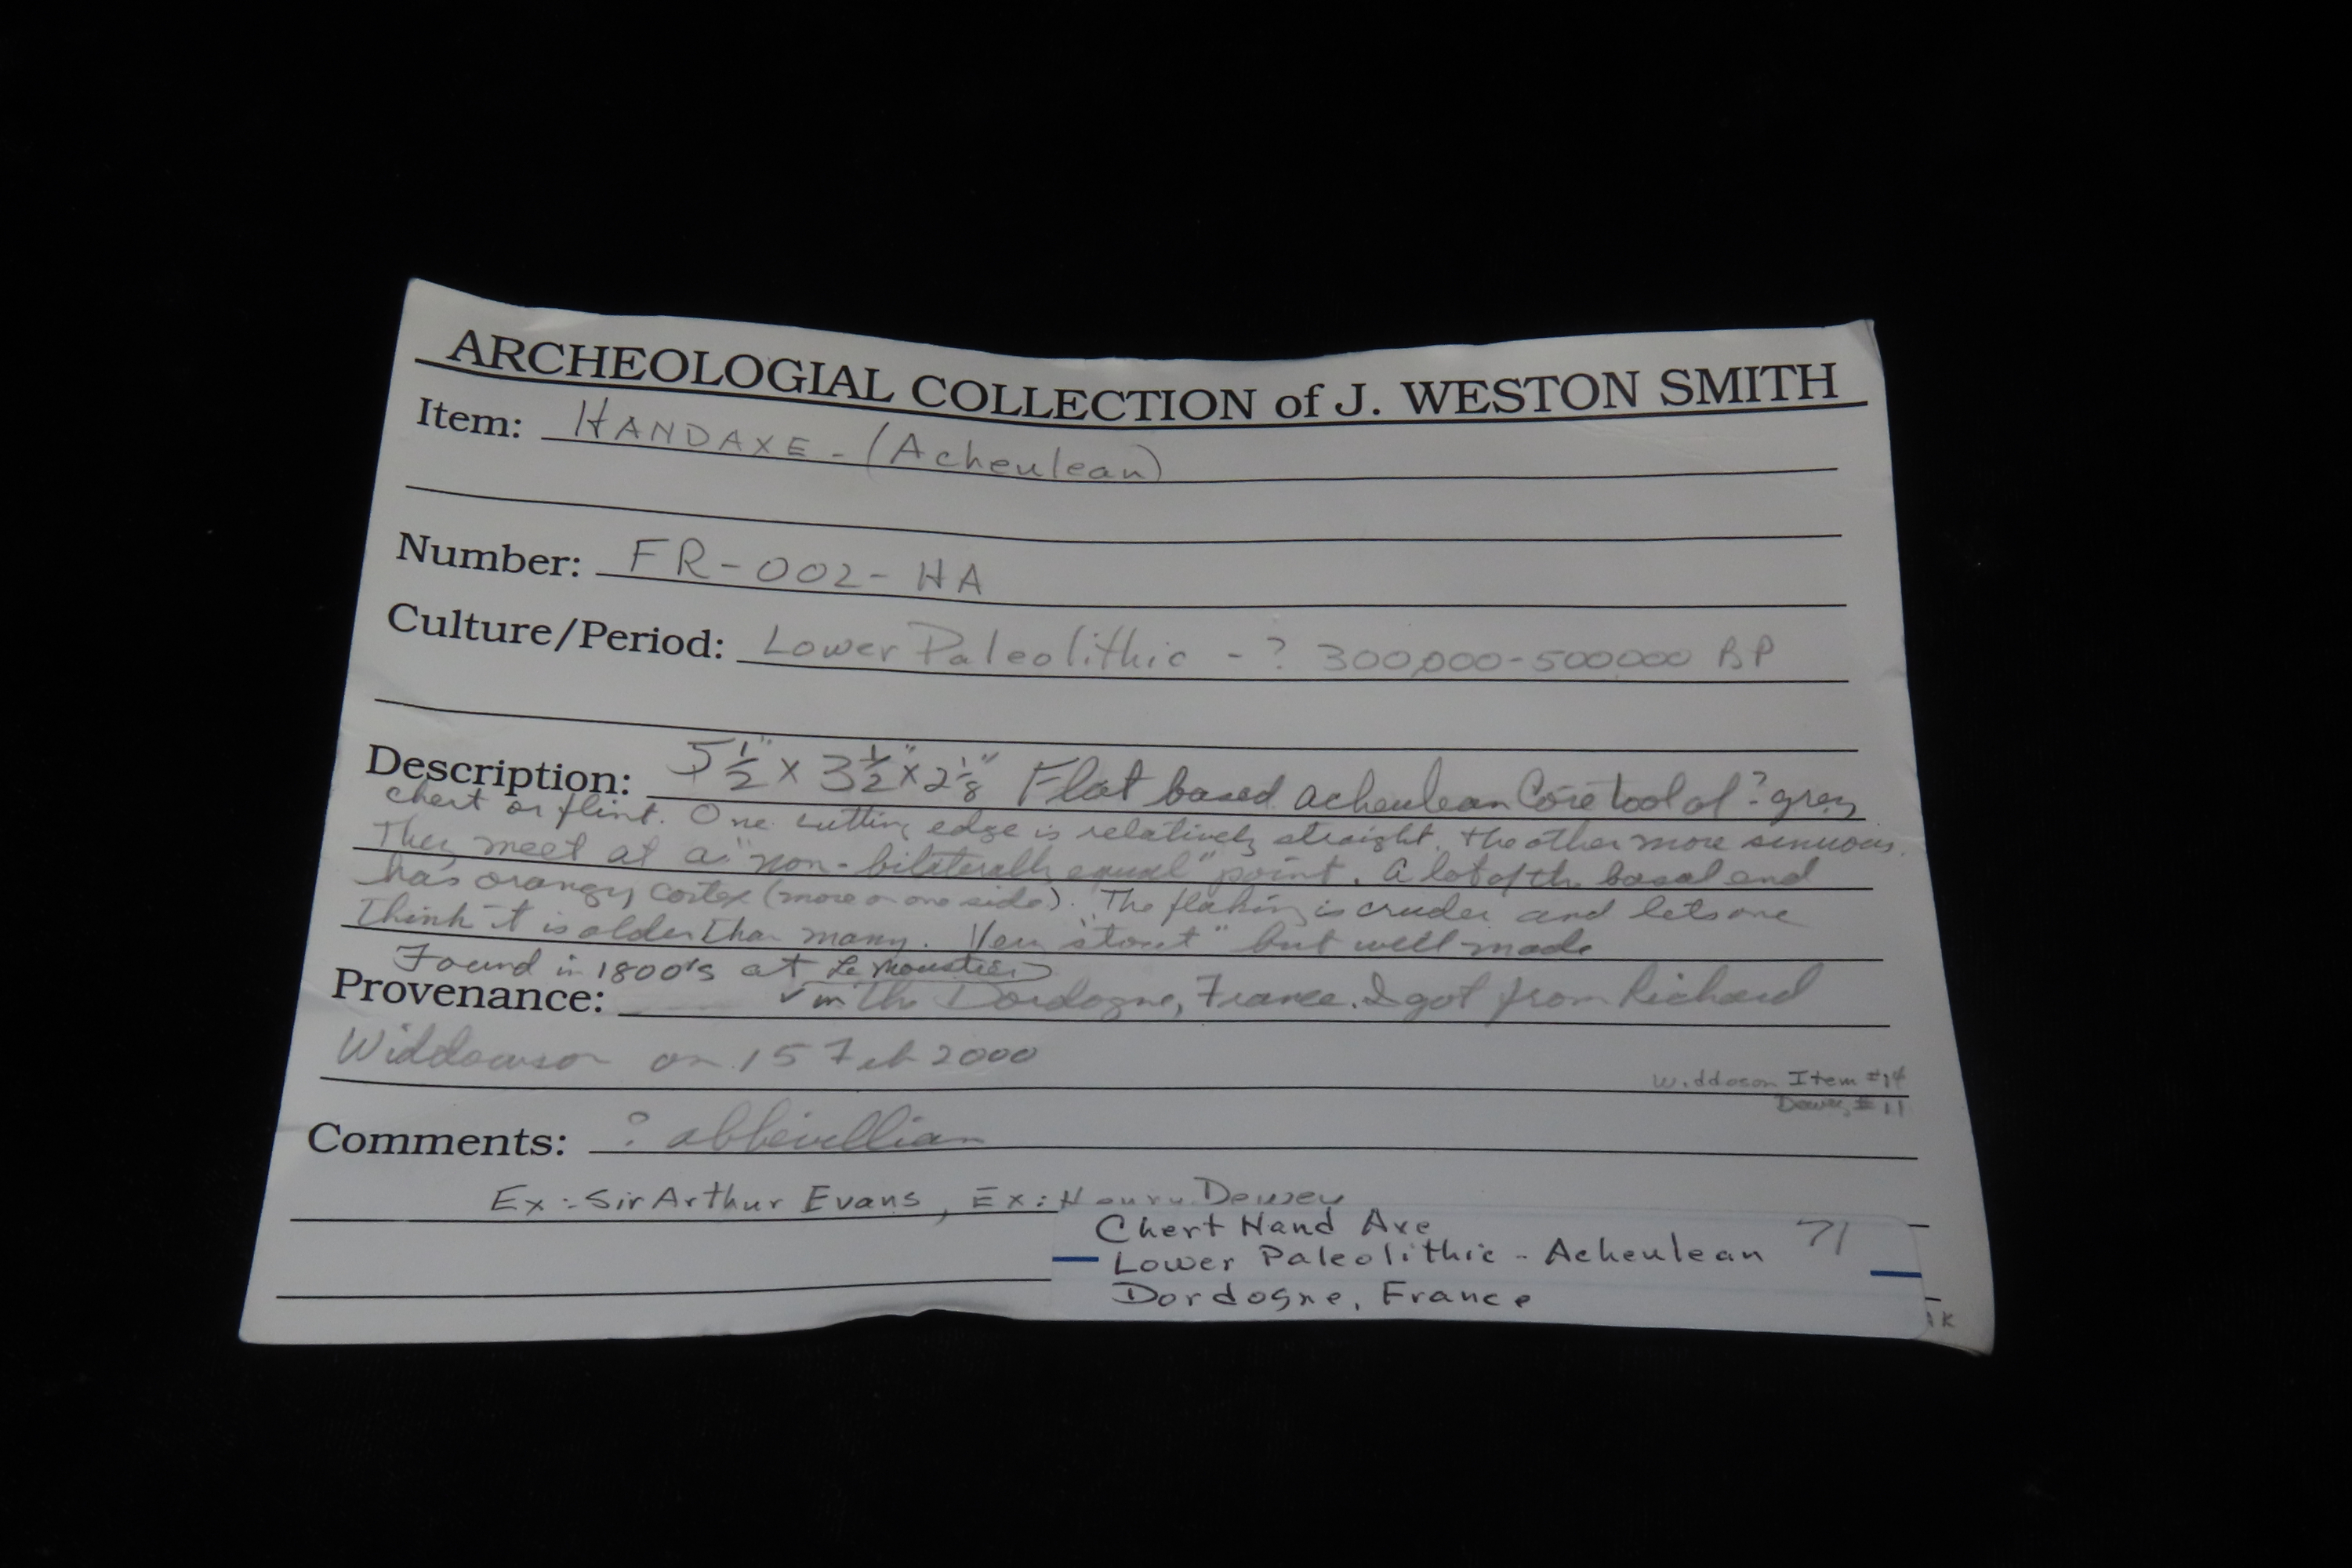 ARCHEOLOGIAL COLLECTION of J. WESTON SMITH
Item: HANDAXE - (Acheulean)
Number: FR-002-HA
Culture/Period: Lower Paleolithic - ? 300,000-500,000 BP
Description: 5 1/2" x 3 1/2" x 2 1/8" Flat based acheulean Core tool of ? grey
chert or flint. One cutting edge is relatively straight. the other more sinuous.
They meet at a "non-bilaterally equal" point. A lot of the basal end
has orangey cortex (more on one side). The flaking is cruder and lets one
think it is older than many. Very "stout" but well made
Found in 1800's at Le Moustier
Provenance: in the Dordogne, France. I got from Richard
Widdowson on 15 Feb 2000
Widdoson Item #14
Dewey #11
Comments: ? abbevillian
Ex: Sir Arthur Evans, Ex: Henry Dewey
Chert Hand Axe 71
Lower Paleolithic - Acheulean
Dordogne, France